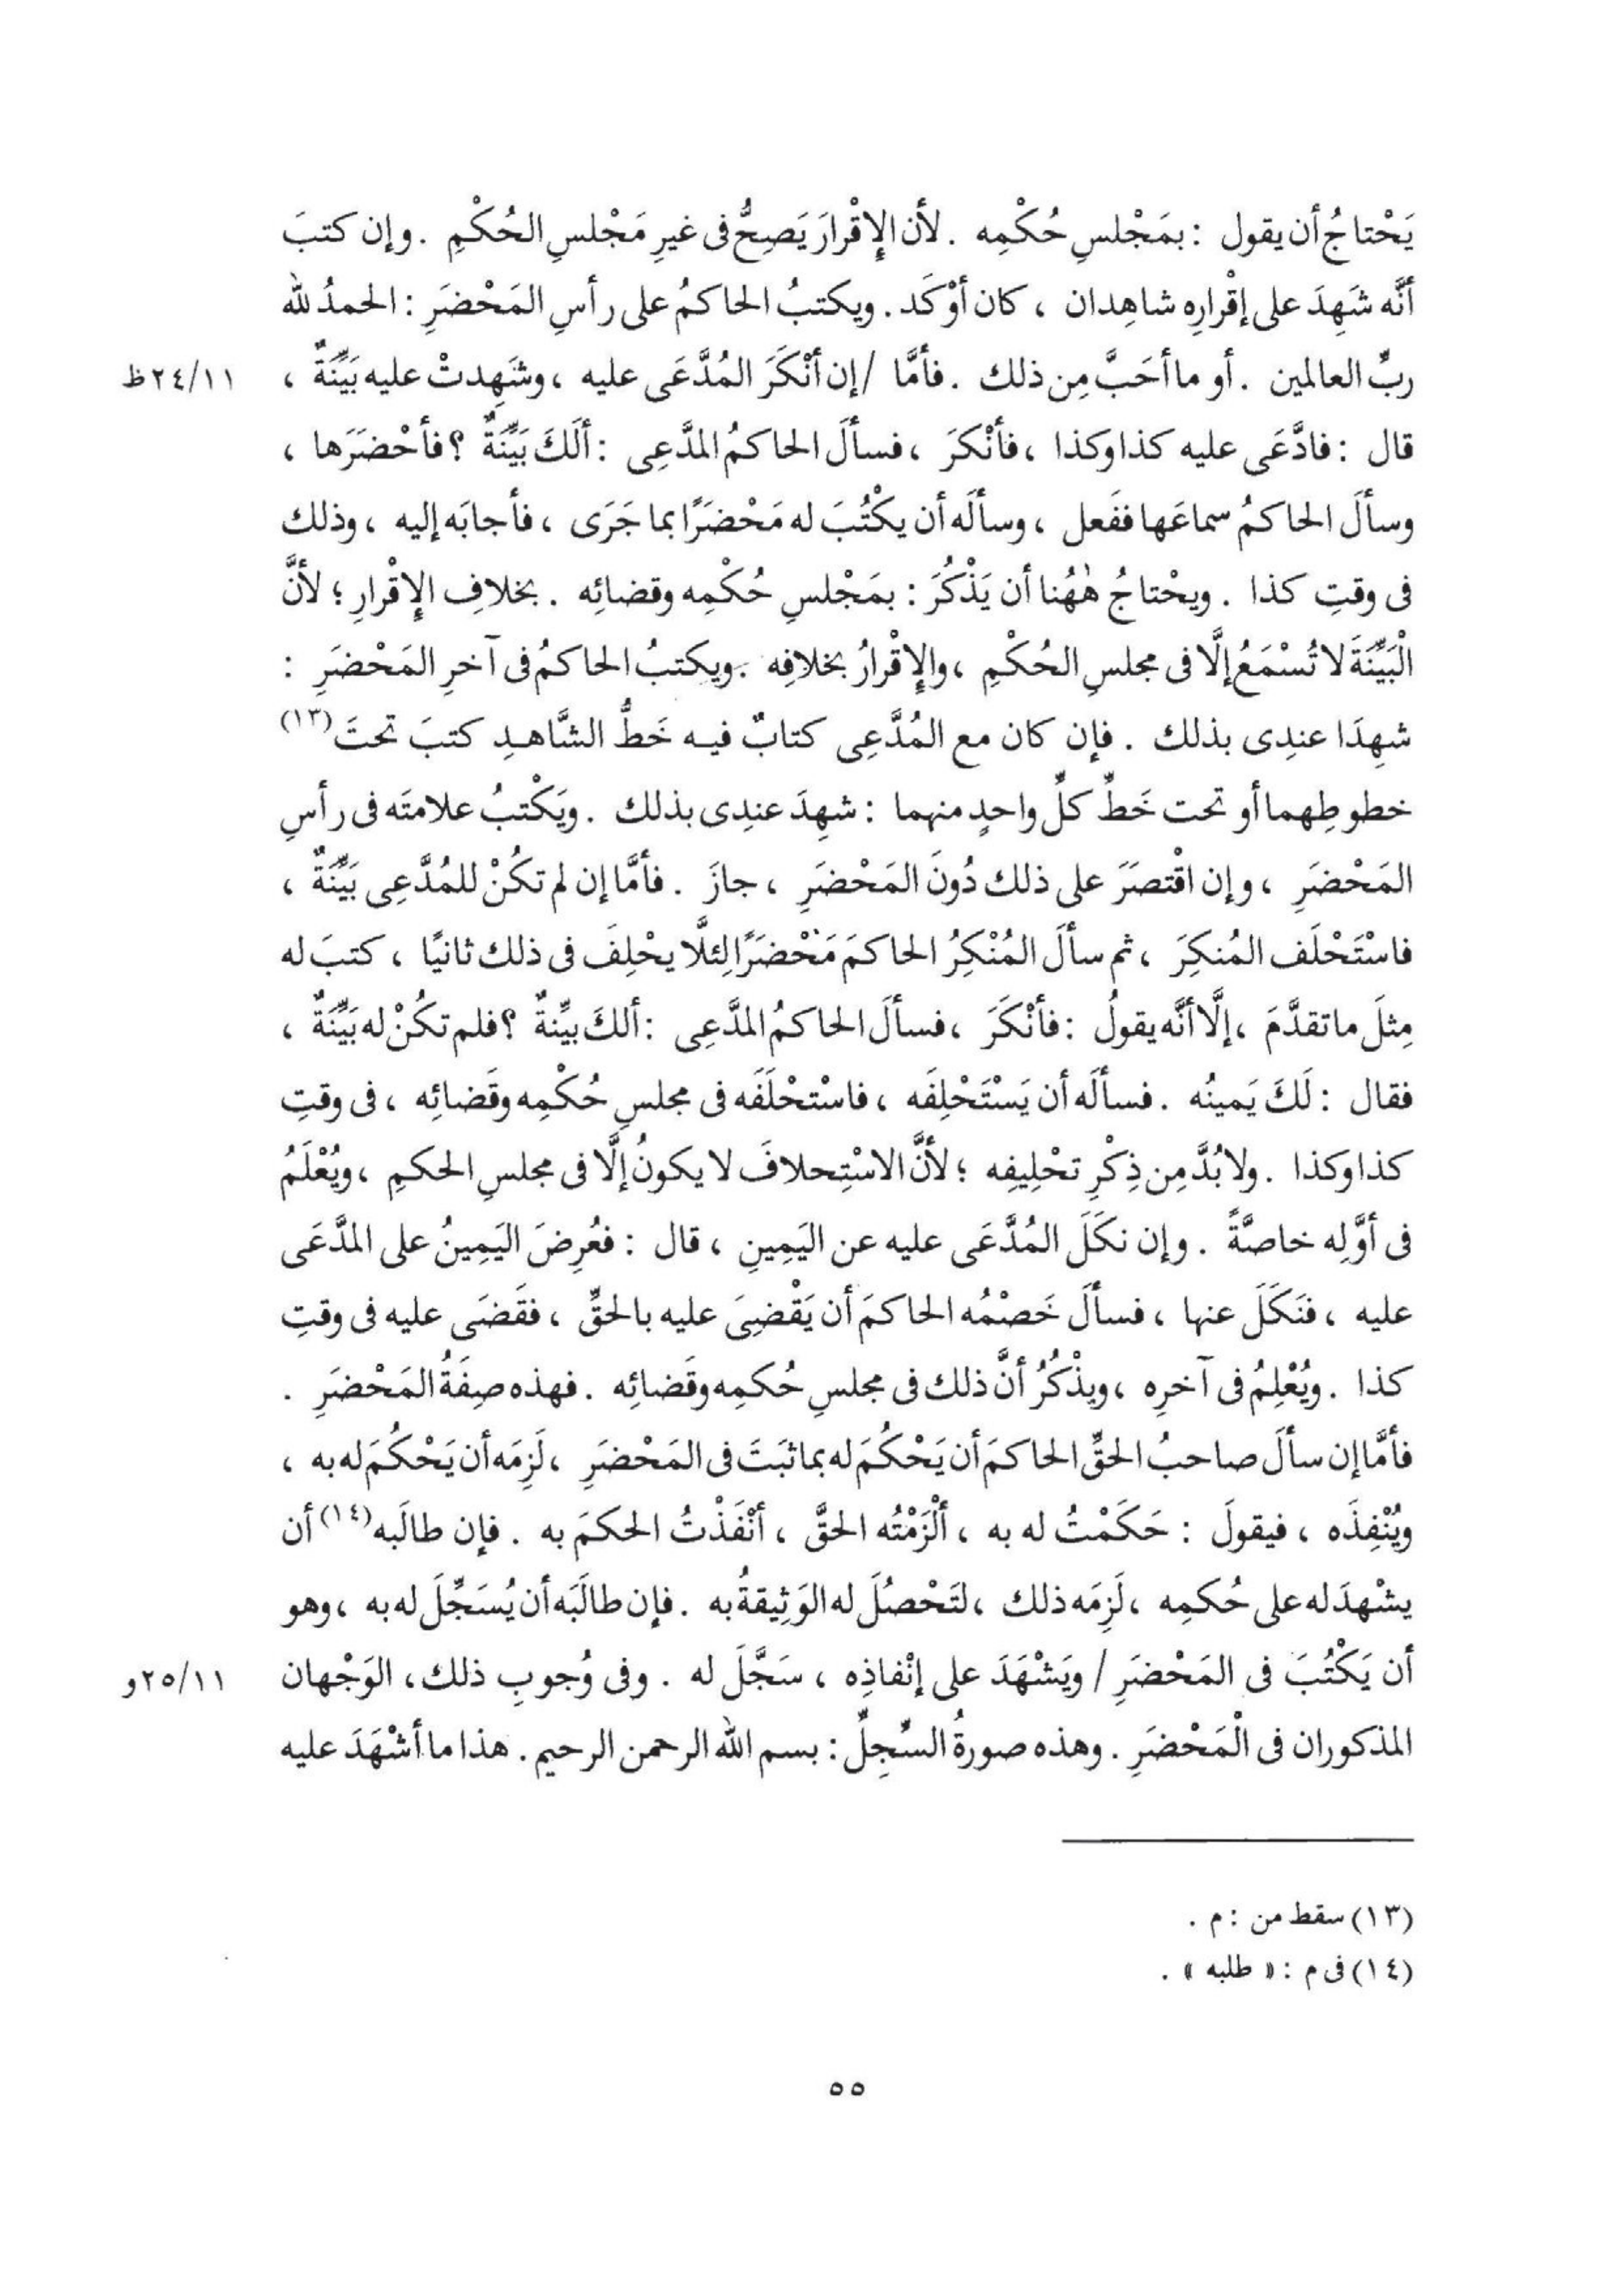 يَحْتاجُ أن يقول : بمَجْلسِ حُكْمِه . لأن الإِقْرارَ يَصِحُّ فى غيرِ مَجْلسِ الحُكْمِ . وإن كتبَ
أنَّه شَهِدَ على إقْرارِه شاهِدان ، كان أوْكَد . ويكتبُ الحاكمُ على رأسِ المَحْضَرِ : الحمدُ لله
ربِّ العالمين . أو ما أحَبَّ مِن ذلك . فأمَّا / إن أنْكَرَ المُدَّعَى عليه ، وشَهِدتْ عليه بَيِّنَةٌ ، ٢٤/١١ظ
قال : فادَّعَى عليه كذا وكذا ، فأنْكرَ ، فسألَ الحاكمُ المدَّعِى : ألَكَ بَيِّنَةٌ ؟ فأحْضَرَها ،
وسألَ الحاكمُ سماعَها ففَعل ، وسألَه أن يكْتُبَ له مَحْضَرًا بما جَرَى ، فأجابَه إليه ، وذلك
فى وقتِ كذا . ويحْتاجُ هٰهُنا أن يَذْكُرَ : بمَجْلسِ حُكْمِه وقضائِه . بخلافِ الإِقْرارِ ؛ لأنَّ
الْبَيِّنَةَ لا تُسْمَعُ إلَّا فى مجلسِ الحُكْمِ ، والإِقْرارُ بخلافِه . ويكتبُ الحاكمُ فى آخرِ المَحْضَرِ :
شهِدَا عندِى بذلك . فإن كان مع المُدَّعِى كتابٌ فيه خَطُّ الشَّاهدِ كتبَ تحتَ(١٣)
خطوطِهما أو تحت خَطِّ كلِّ واحدٍ منهما : شهِدَ عندِى بذلك . ويَكْتبُ علامتَه فى رأسِ
المَحْضَرِ ، وإن اقْتصَرَ على ذلك دُونَ المَحْضَرِ ، جازَ . فأمَّا إن لم تكُنْ للمُدَّعِى بَيِّنَةٌ ،
فاسْتَحْلَف المُنكِرَ ، ثم سألَ المُنْكِرُ الحاكمَ مَحْضَرًا لِئلَّا يحْلِفَ فى ذلك ثانيًا ، كتبَ له
مِثلَ ما تقدَّمَ ، إلَّا أنَّه يقولُ : فأنْكَرَ ، فسألَ الحاكمُ المدَّعِى : ألكَ بيِّنةٌ ؟ فلم تكُنْ له بَيِّنَةٌ ،
فقال : لَكَ يَمينُه . فسألَه أن يَسْتَحْلِفَه ، فاسْتحْلَفَه فى مجلسِ حُكْمِه وقَضائِه ، فى وقتِ
كذا وكذا . ولا بُدَّ مِن ذِكْرِ تحْلِيفِه ؛ لأنَّ الاسْتِحلافَ لا يكونُ إلَّا فى مجلسِ الحكمِ ، ويُعْلَمُ
فى أوَّلِه خاصَّةً . وإن نكَلَ المُدَّعَى عليه عن اليَمِينِ ، قال : فعُرِضَ اليَمِينُ على المدَّعَى
عليه ، فنَكَلَ عنها ، فسألَ خَصْمُه الحاكمَ أن يَقْضِىَ عليه بالحقِّ ، فقَضَى عليه فى وقتِ
كذا . ويُعْلِمُ فى آخرِه ، ويذْكُرُ أنَّ ذلك فى مجلسِ حُكمِه وقَضائِه . فهذه صِفَةُ المَحْضَرِ .
فأمَّا إن سألَ صاحبُ الحقِّ الحاكمَ أن يَحْكُمَ له بما ثبَتَ فى المَحْضَرِ ، لَزِمَه أن يَحْكُمَ له به ،
ويُنْفِذَه ، فيقولَ : حَكَمْتُ له به ، ألْزَمْتُه الحقَّ ، أنْفَذْتُ الحكمَ به . فإن طالَبه(١٤) أن
يشْهدَ له على حُكمِه ، لَزِمَه ذلك ، لتَحْصُلَ له الوَثِيقةُ به . فإن طالَبَه أن يُسَجِّلَ له به ، وهو
أن يَكْتُبَ فى المَحْضَرِ / ويَشْهَدَ على إنْفاذِه ، سَجَّلَ له . وفى وُجوبِ ذلك ، الوَجْهان ٢٥/١١و
المذكوران فى الْمَحْضَرِ . وهذه صورةُ السِّجِلِّ : بسم الله الرحمن الرحيم . هذا ما أشْهَدَ عليه
(١٣) سقط من : م .
(١٤) فى م : « طلبه » .
٥٥